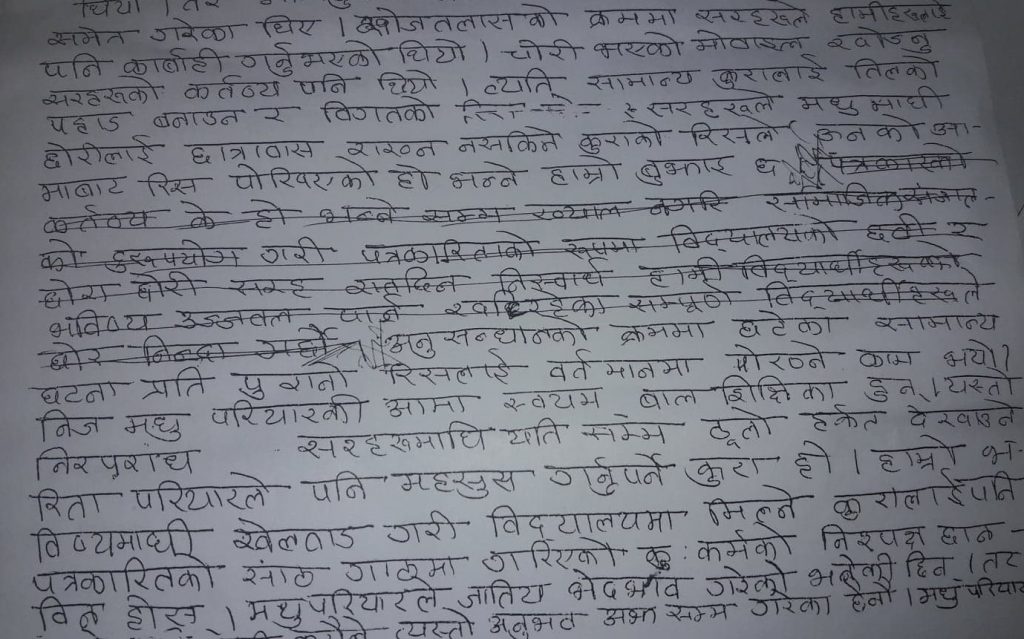 थियो । तर
समेत गरेका थिए । खोजतलासको क्रममा सरहरुले हामीहरुलाई
पनि कार्बाही गर्नुभएको थियो । चोरी भएको मोवाइल खोज्नु
सरहरुको कर्तव्य पनि थियो । त्यति सामान्य कुरालाई तिलको
पहाड बनाउन र विगतको सरहरुले मधु माथी
छोरीलाई छात्रावास राख्न नसकिने कुराको रिसले उनको आ-
माबाट रिस पोखिएको हो भन्ने हाम्रो बुझाइ छ पत्रकारको
कर्तव्य के हो भन्ने सम्म ख्याल नगरि सामाजिक संजाल-
को दुरुपयोग गरी पत्रकारिताको रुपमा विद्यालयको छवी र
छोरा छोरी सरह निस्वार्थ हामी विद्यार्थीहरुको
भविष्य उज्जवल पार्न सम्पूर्ण विद्यार्थीहरुले
घोर निन्दा गर्छौं अनुसन्धानको क्रममा घटेका सामान्य
घटना प्रति पुरानो रिसलाई वर्तमानमा पोख्ने काम भयो ।
निज मधु परियारकी आमा स्वयम बाल शिक्षिका हुन् । यस्तो
निरपराध सरहरुमाथि यति सम्म ठूलो हर्कत देखाउने
रिता परियारले पनि महसुस गर्नुपर्ने कुरा हो । हाम्रो भ-
विष्यमाथी खेलवाड गरी विद्यालयमा मिल्ने कुरालाई पनि
पत्रकारितको साँठ गाठमा गरिएको कु कर्मको निश्पक्ष छान-
विन होस् । मधु परियारले जातिय भेदभाव गरेको भन्नेली हिन । तर
त्यस्तो अनुभव अझ सम्म गरेका छैनौ । मधु परियार